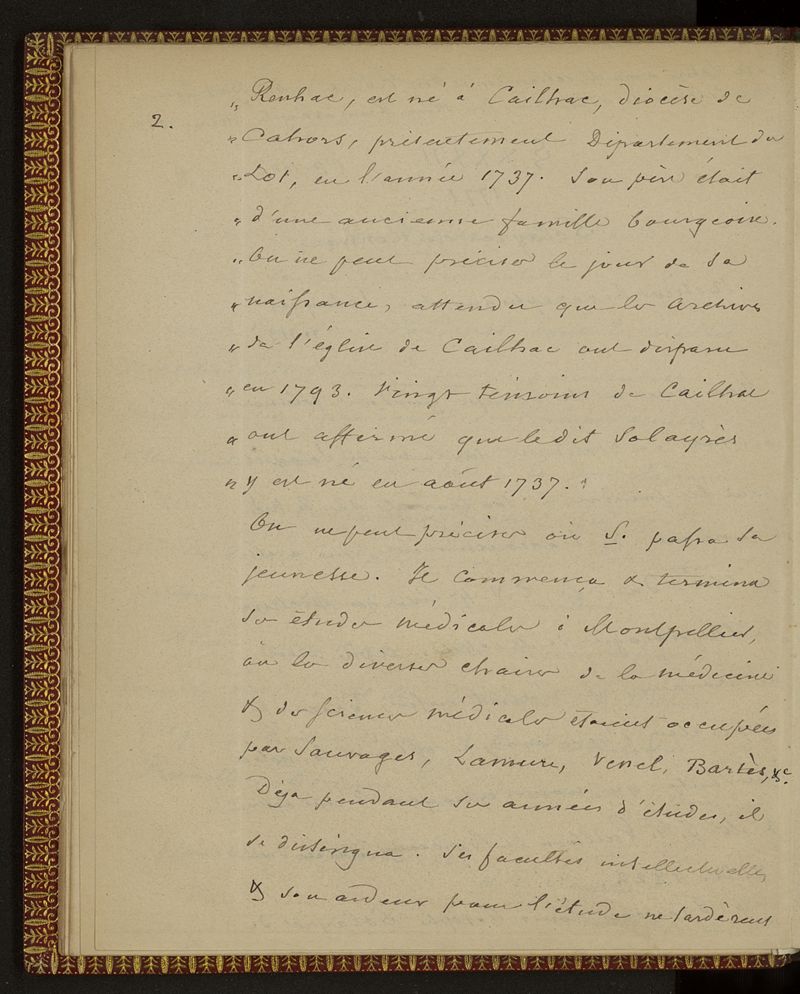 2.
„ Renhac, est né à Cailhac, diocèse de
„ Cahors, présentement Département du
„ Lot, en l'année 1737. Son père était
„ d'une ancienne famille bourgeoise.
„ On ne peut préciser le jour de sa
„ naissance, attendu que les archives
„ de l'église de Cailhac ont disparu
„ en 1793. Vingt témoins de Cailhac
„ ont affirmé que ledit Solayrès
„ y est né en août 1737. "
On ne peut préciser où S. passa sa
jeunesse. Il commença & termina
ses études médicales à Montpellier,
où les diverses chaires de la médecine
& des sciences médicales étaient occupées
par Sauvages, Lamure, Venel, Bartès, &c.
Déja pendant ses années d'études, il
se distingua. Ses facultés intellectuelles
& son ardeur pour l'étude ne tardèrent